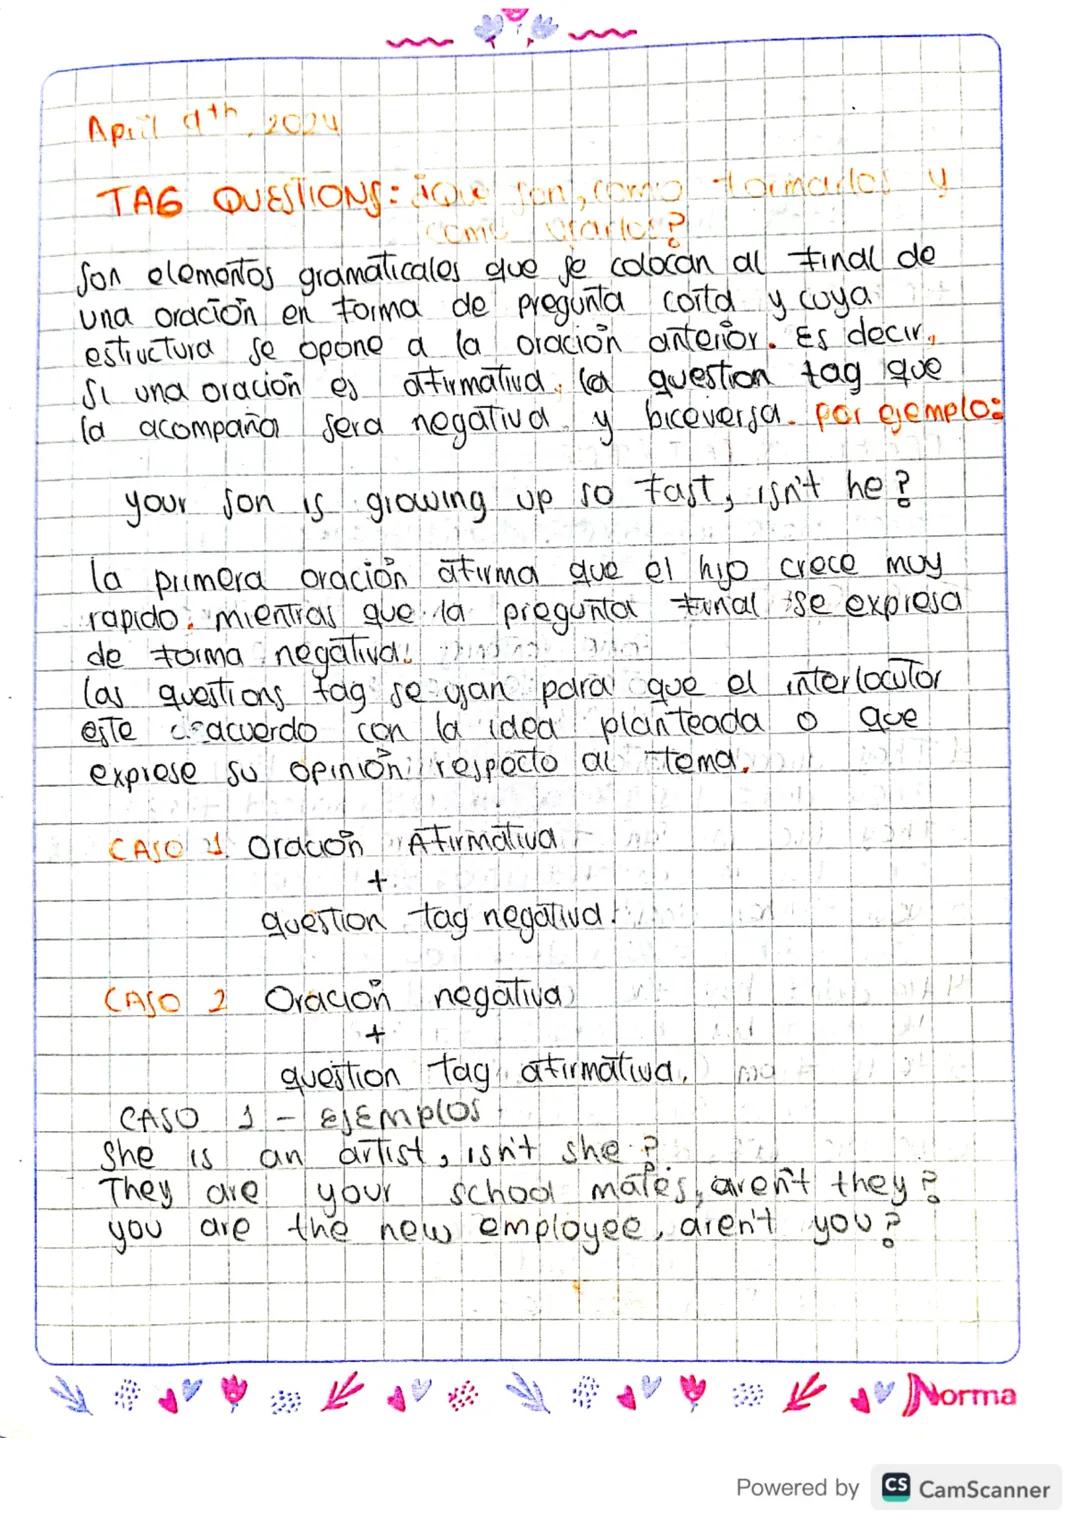 April 9th, 2024
TAG QUESTIONS: ¿Que son, como formarlos y
como usarlos?
Son elementos gramaticales que se colocan al final de
una oración en forma de pregunta corta y cuya
estructura se opone a la oración anterior. Es decir,
Si una oración es afirmativa, la question tag que
la acompaña sera negativa y biceversa. por ejemplo:
your son is growing up so fast, isn't he?
la primera oración afirma que el hijo crece muy
rapido. mientras que la pregunta final se expresa
de forma negativa.
las questions tag se usan para que el interlocutor
este acuerdo con la idea planteada o que
exprese su opinión respecto al tema.
CASO 1. Oración Afirmativa
+
question tag negativa.
CASO 2 Oración negativa
+
question tag afirmativa.
CASO 1 - EJEMPlOS
She is an artist, isn't she?
They are your school mates, aren't they?
you are the new employee, aren't you?
Norma
Powered by CS CamScanner